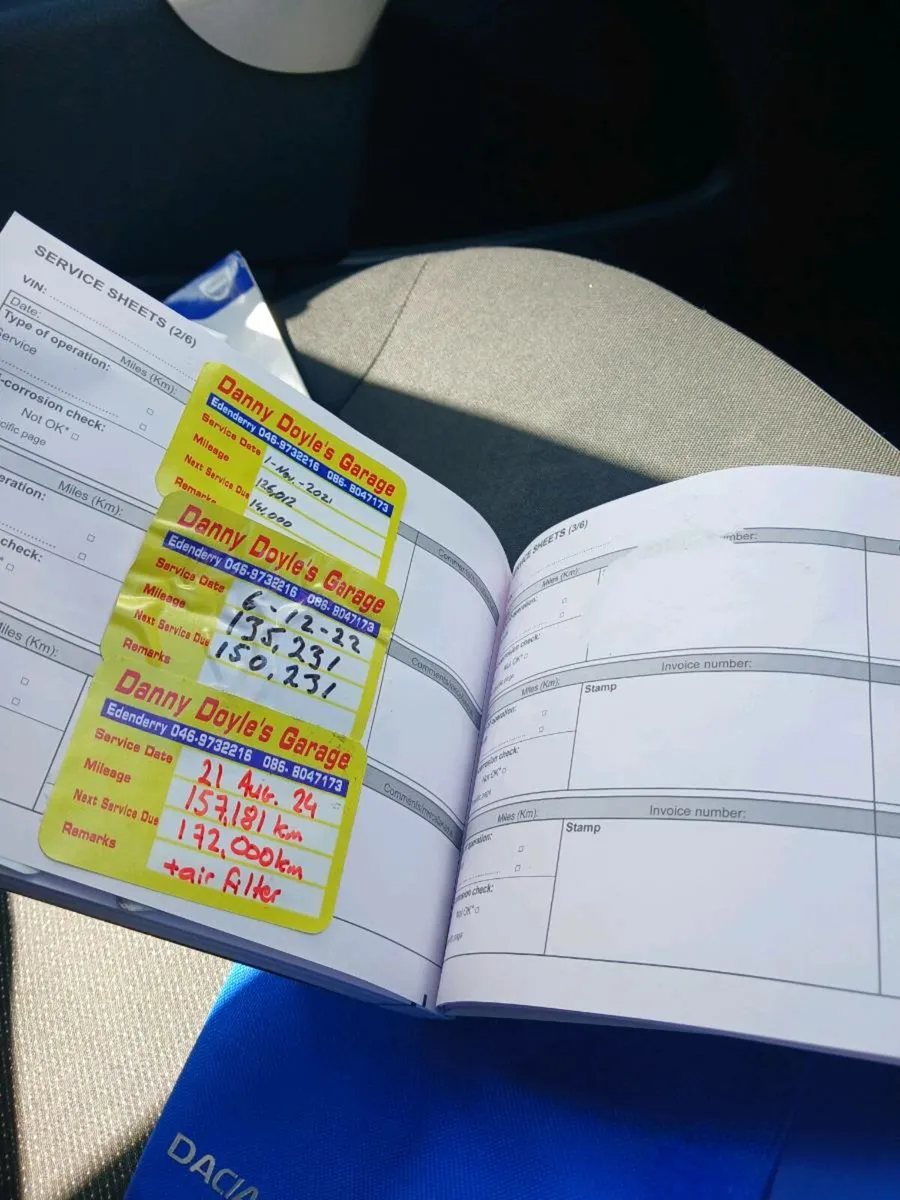 SERVICE SHEETS (2/6)
VIN:
Date:
Miles (Km):
Type of operation:
Service
-corrosion check:
Not OK*
page
Danny Doyle's Garage
Edenderry 046-9732216 086- 8047173
Service Date 1-Nov.-2021
Mileage 126,012
Next Service Due 141.000
Remarks
Miles (Km):
check:
Danny Doyle's Garage
Edenderry 046-9732216 086- 8047173
Service Date 6-12-22
Mileage 135,231
Next Service Due 150,231
Remarks
Miles (Km):
Danny Doyle's Garage
Edenderry 046-9732216 086- 8047173
Service Date 21 Aug. 24
Mileage 157,181 km
Next Service Due 172,000km
Remarks +air filter
SHEETS (3/6)
Miles (Km):
check:
Not OK*
Invoice number:
Miles (Km):
Stamp
check:
Not OK*
Invoice number:
Miles (Km):
Stamp
check:
Not OK*
DACIA